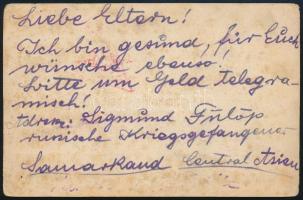 Liebe Eltern!
Ich bin gesund, für Euch
wünsche ebenso!
bitte um Geld telegra-
misch!
Adresse: Sigmund Fülöp
russische Kriegsgefangener
Samarkand Central Asien